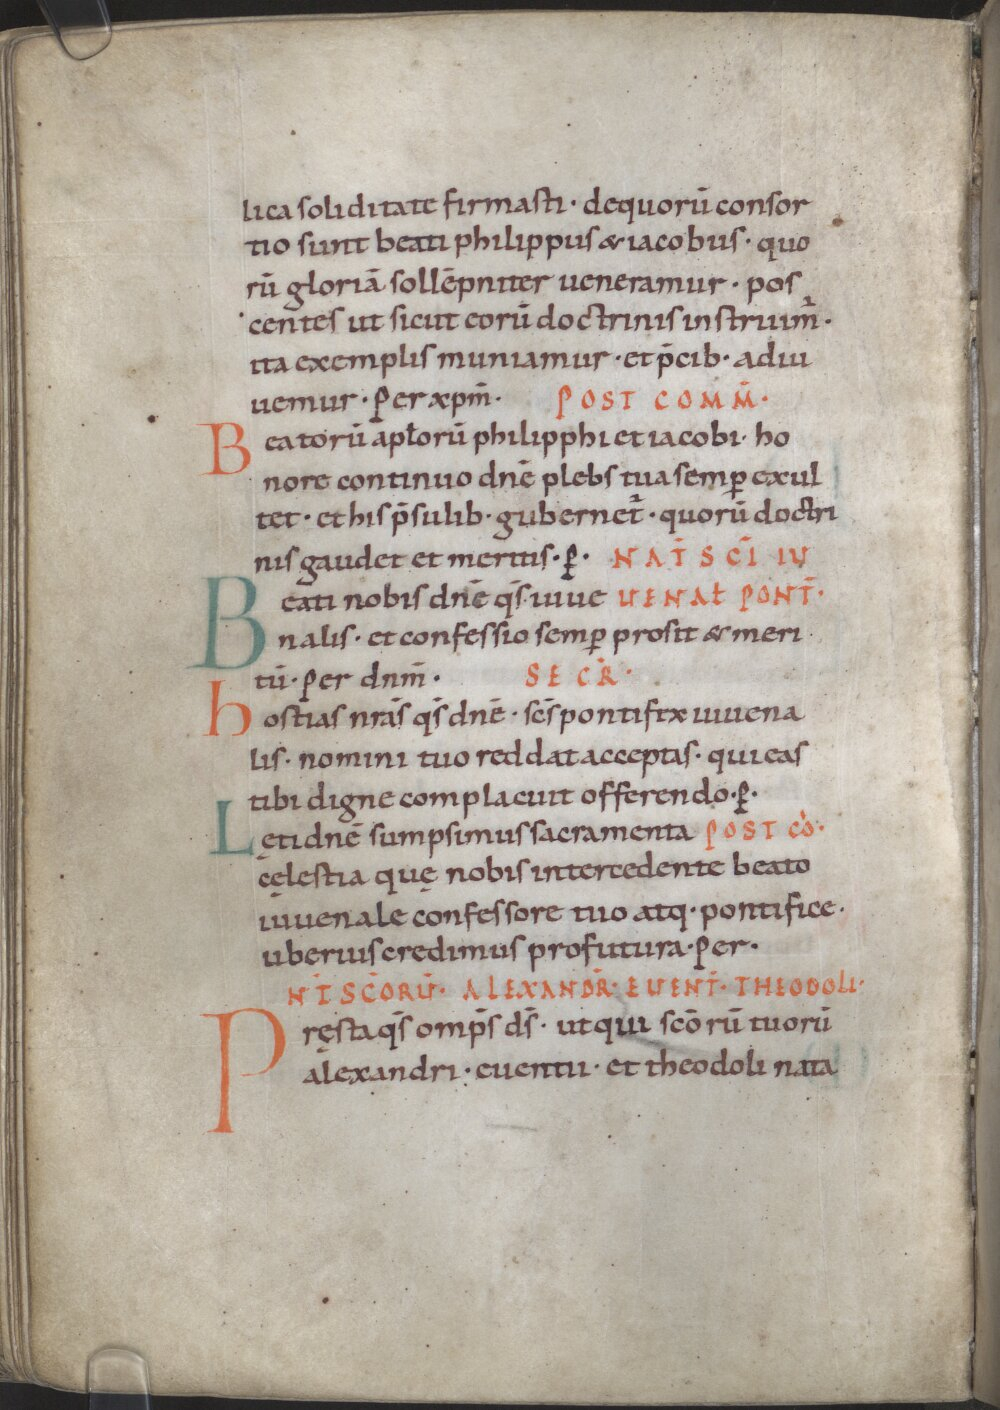 lica soliditate firmasti· dequorū consor
tio sunt beati philippus & iacobus· quo
rū gloriā sollēpniter ueneramur· pos
centes ut sicut eorū doctrinis instruim̄·
ita exemplis muniamur· et p̄cib· adiu
uemur· Per xp̄m· POST COMM̄·
Beatorū apłorū philipphi et iacobi· ho
nore continuo dnē plebs tua semꝑ exul
tet· et his p̄sulib· gubernet̄· quorū doctri
nis gaudet et meritis· P̱· NAT̄ SC̄I IU
Beati nobis dnē qs̄ iuue UENAŁ PONT̄·
nalis· et confessio semꝑ prosit & meri
tū· Per dnm̄· SECR̄·
hostias nrās qs̄ dnē· sc̄s pontifex iuuena
lis· nomini tuo reddat acceptas· qui eas
tibi digne complacuit offerendo· P̱·
Lęti dnē sumpsimus sacramenta POST CŌ·
cęlestia quę nobis intercedente beato
iuuenale confessore tuo atq· pontifice·
uberius credimus profutura· Per·
NT̄ SC̄ORŪ· ALEXANDR̄· EUENT̄· THEODOLI·
Pręsta qs̄ omps̄ ds̄· ut qui scōrū tuorū
alexandri· euentu· et theodoli nata